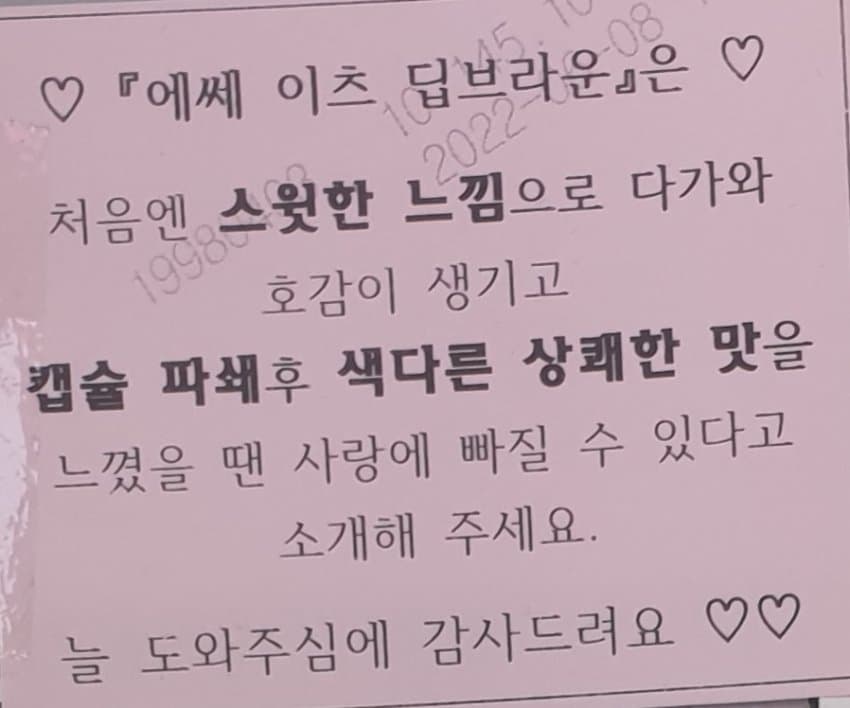 ♡ 『에쎄 이츠 딥브라운』은 ♡
처음엔 스윗한 느낌으로 다가와
호감이 생기고
캡슐 파쇄후 색다른 상쾌한 맛을
느꼈을 땐 사랑에 빠질 수 있다고
소개해 주세요.
늘 도와주심에 감사드려요 ♡♡